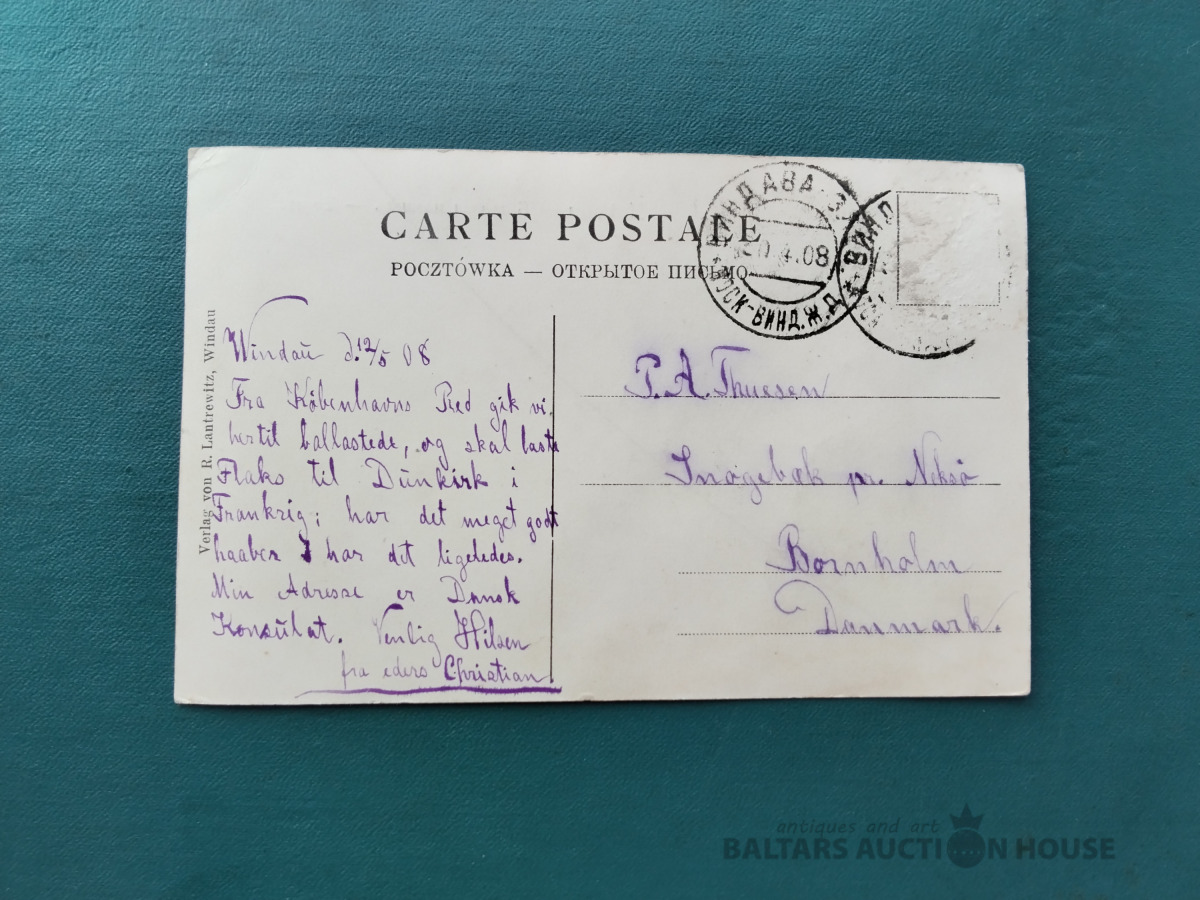 CARTE POSTALE
POCZTÓWKA — ОТКРЫТОЕ ПИСЬМО
ВИНДАВА
4.08
МОСК-ВИНД.Ж.Д.
ВИНД
Verlag von R. Lantrewitz, Windau
Windau d. 12/5 08
Fra Københavns Red gik vi
hertil ballastede, og skal laste
Flaks til Dünkirk i
Frankrig; har det meget godt
haaber I har det ligeledes.
Min Adresse er Dansk
Konsulat. Venlig Hilsen
fra eders Christian.
P. A. Thuesen
Snogebæk pr. Neksø
Bornholm
Danmark.
antiques and art
BALTARS AUCTION HOUSE